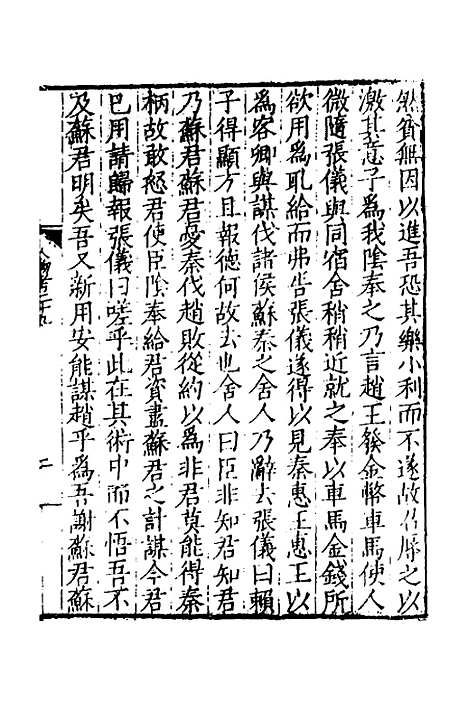 然貧無因以進吾恐其樂小利而不遂故召辱之以
激其意子爲我陰奉之乃言趙王發金幣車馬使人
微隨張儀與同宿舍稍稍近就之奉以車馬金錢所
欲用爲取給而弗告張儀遂得以見秦惠王惠王以
爲客卿與謀伐諸侯蘇秦之舍人乃辭去張儀曰賴
子得顯方且報德何故去也舍人曰臣非知君知君
乃蘇君蘇君憂秦伐趙敗從約以爲非君莫能得秦
柄故敢怒君使臣陰奉給君資盡蘇君之計謀今君
已用請歸報張儀曰嗟乎此在其術中而不悟吾不
及蘇君明矣吾又新用安能謀趙乎爲吾謝蘇君蘇